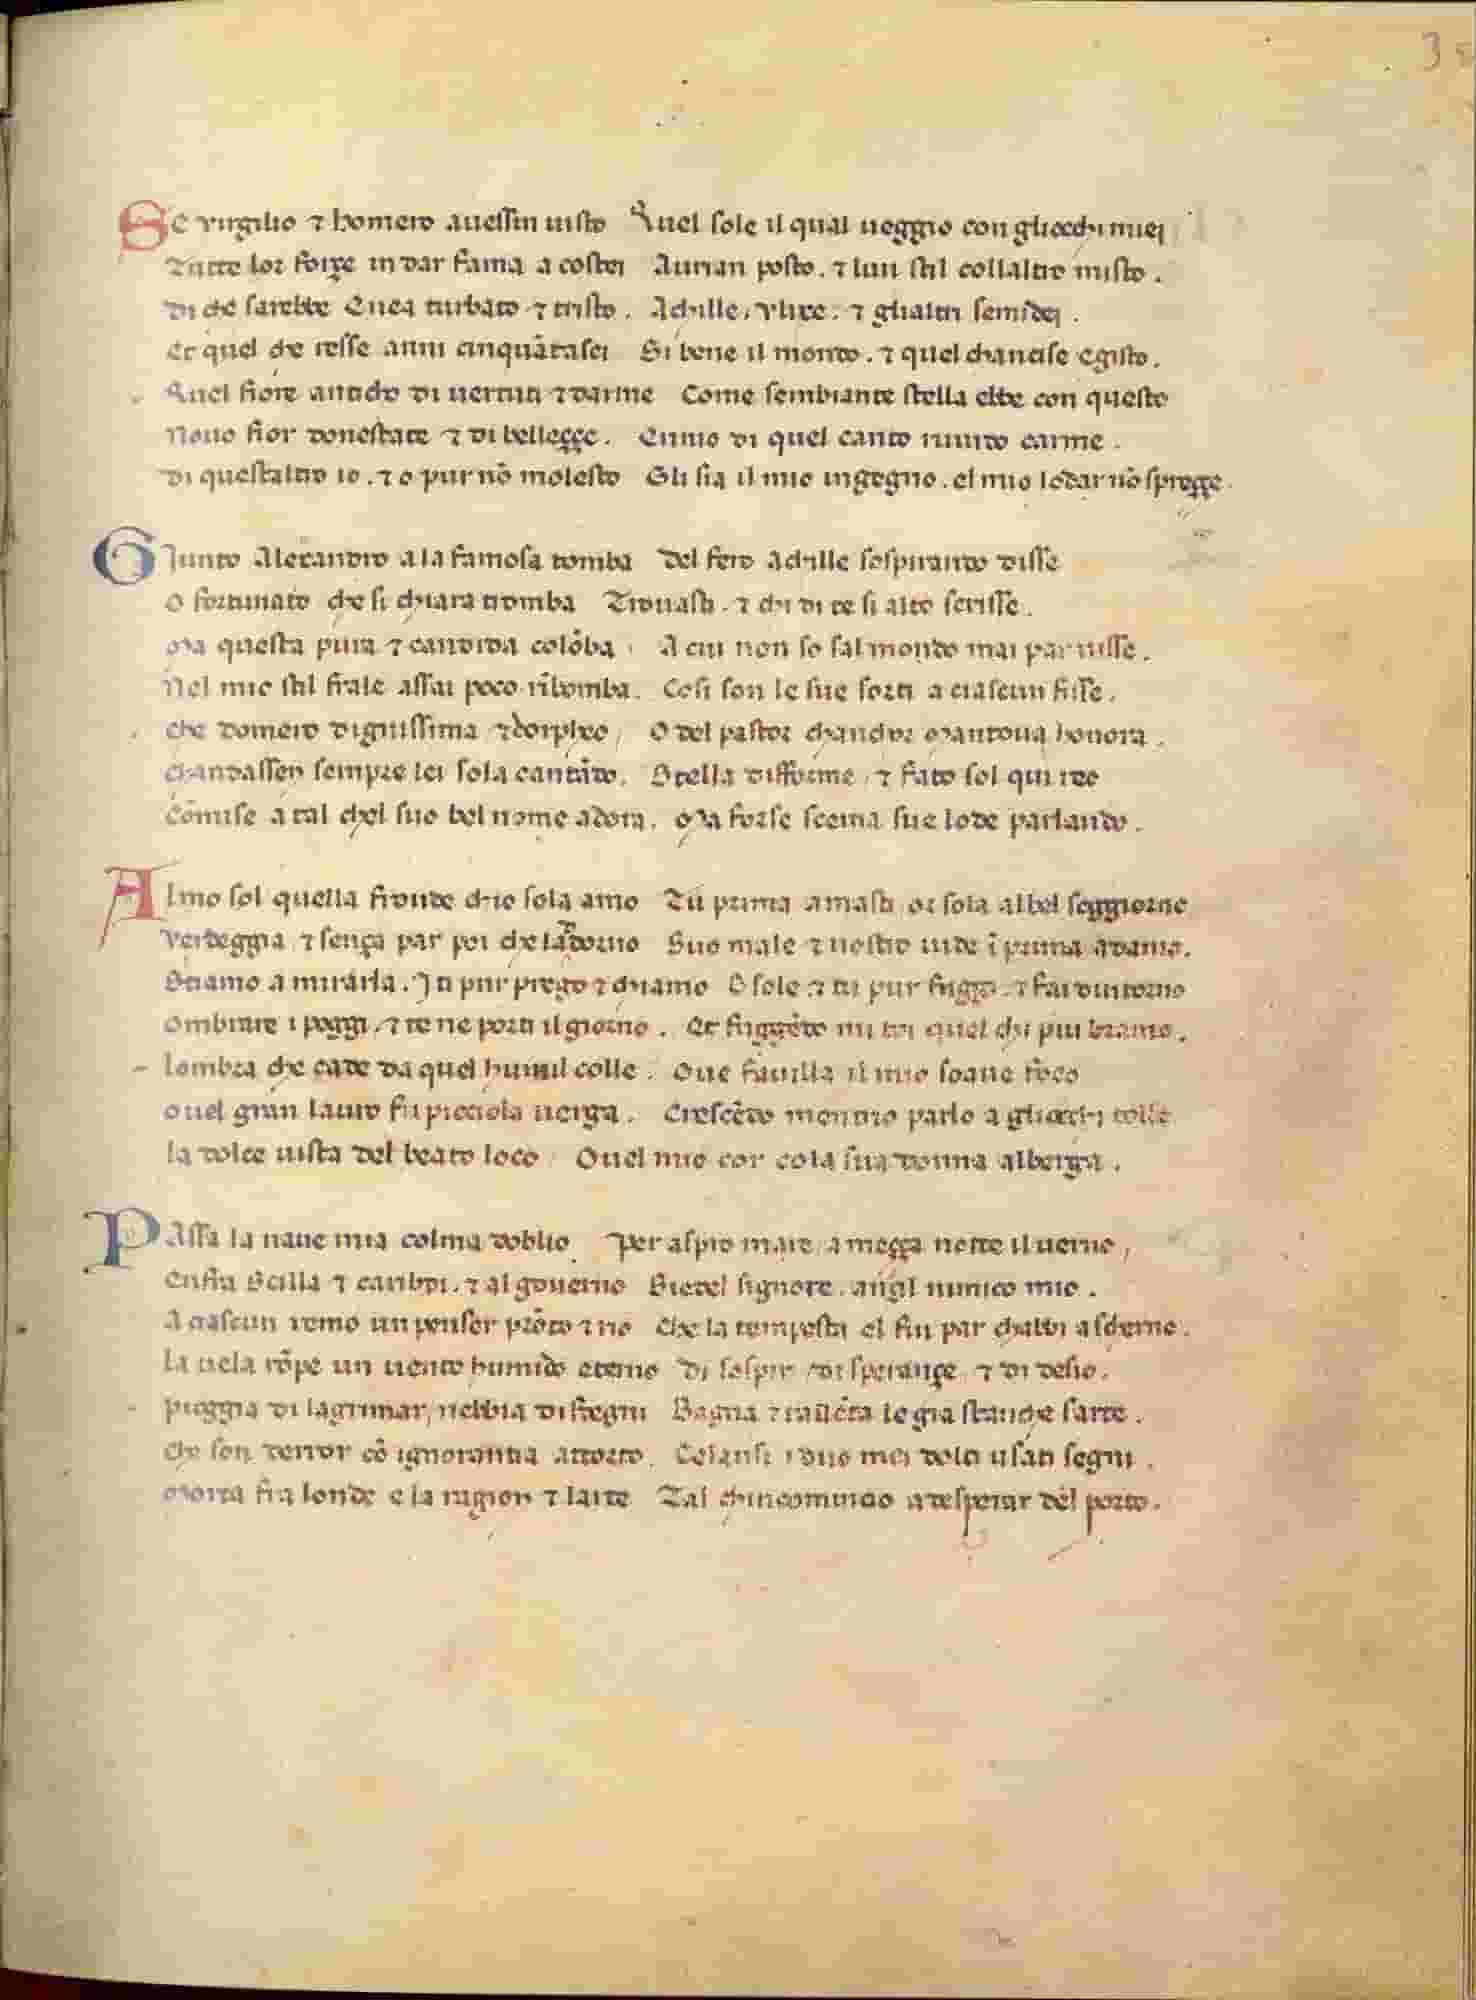 3
Se virgilio ⁊ homero auessin uisto Quel sole il qual ueggio con gliocchi miei
Tutte lor forze in dar fama a costei Aurian posto . ⁊ lun stil collaltro misto .
Di che sarebbe Enea turbato ⁊ tristo . Achille , vlixe , ⁊ glialtri semidei .
Et quel che resse anni cinquãtasei Si bene il mondo . ⁊ quel chancise egisto .
Quel fiore anticho di uertuti ⁊ darme Come sembiante stella ebbe con questo
Nouo fior donestate ⁊ di bellezze . Ennio di quel canto ruuido carme .
Di questaltro io . ⁊ o pur nõ molesto Gli sia il mio ingegno . el mio lodar nõ sprezze .
Giunto Alexandro a la famosa tomba Del fero Achille sospirando disse
O fortunato che si chiara tromba Trouasti . ⁊ chi di te si alto scrisse .
Ma questa pura ⁊ candida colõba A cui non so sal mondo mai par uisse .
Nel mio stil frale assai poco rĩbomba . Cosi son le sue sorti a ciascun fisse .
Che domero dignissima ⁊ dorpheo , O del pastor chanchor Mantoua honora .
Chandassen sempre lei sola cantãdo . Stella difforme ⁊ fato sol qui reo
Cõmise a tal chel suo bel nome adora . Ma forse scema sue lode parlando .
Almo sol quella fronde chio sola amo Tu prima amasti or sola al bel soggiorno
Verdeggia ⁊ senza par poi che ladorno Suo male ⁊ nostro uide ĩ prima adamo .
Stiamo a mirarla . I ti pur prego ⁊ chiamo O sole ⁊ tu pur fuggi . ⁊ fai dintorno
Ombrare i poggi . ⁊ te ne porti il giorno . Et fuggẽdo mi toi quel chi piu bramo .
Lombra che cade da quel humil colle . Oue fauilla il mio soaue foco
Ouel gran lauro fu picciola uerga . Crescẽdo mentrio parlo a gliocchi tolle
La dolce uista del beato loco Ouel mio cor cola sua donna alberga .
Passa la naue mia colma doblio Per aspro mare a mezza notte il uerno ,
Enfra Scilla ⁊ caribdi . ⁊ al gouerno Siedel signore . anzil nimico mio .
A ciascun remo un penser prõto ⁊ rio Che la tempesta el fin par chabbi a scherno .
La uela rõpe un uento humido eterno Di sospir , di speranze ⁊ di desio .
Pioggia di lagrimar , nebbia di sdegni Bagna ⁊ rallẽta le gia stanche sarte .
Che son derror cõ ignorantia attorto . Celansi i duo mei dolci usati segni .
Morta fra londe e la ragion ⁊ larte Tal chincomincio a desperar del porto .